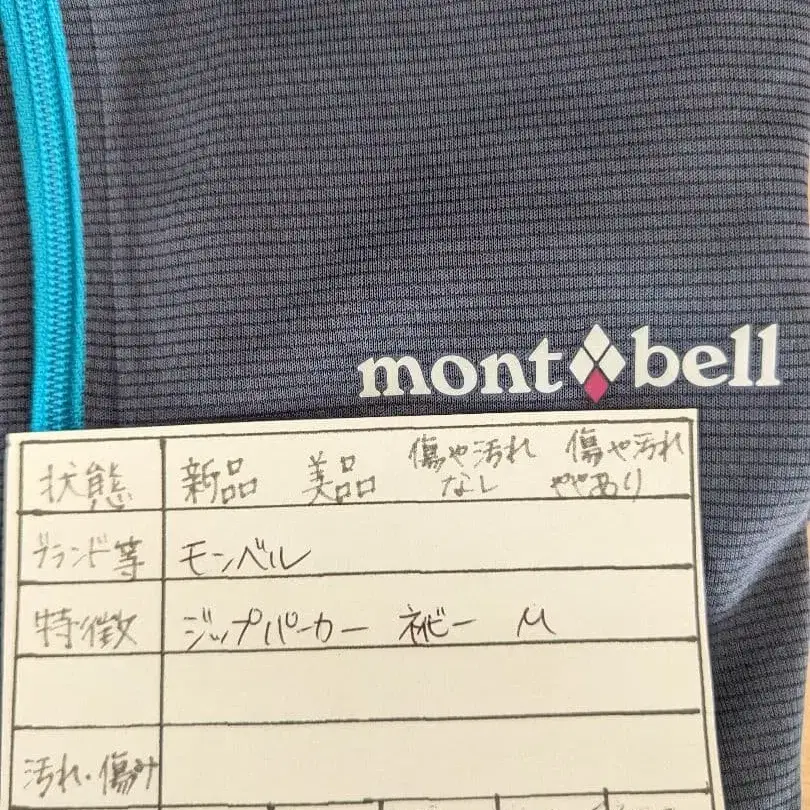 mont bell
状態 新品 美品 傷や汚れなし 傷や汚れややあり
ブランド等 モンベル
特徴 ジップパーカー ネイビー M
汚れ・傷み